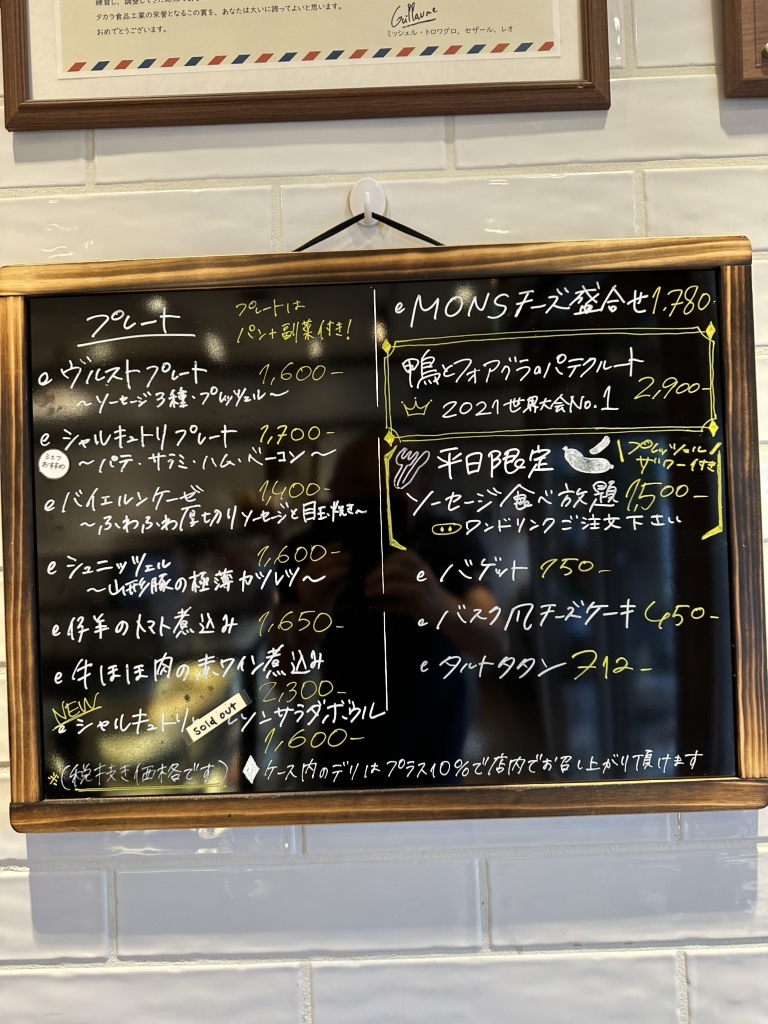 練習し、調整し
タカラ食品工業の栄誉となるこの賞を、あなたは大いに誇ってよいと思います。
おめでとうございます。
Guillaume
ミッシェル・トロワグロ、セザール、レオ
プレート
プレートは
パン+副菜付き!
e ヴルストプレート 1,600-
~ソーセージ3種・プレッツェル~
e シャルキュトリプレート 1,700-
シェフ
おすすめ
~パテ・サラミ・ハム・ベーコン~
e バイエルンケーゼ 1,400-
~ふわふわ厚切りソーセージと目玉焼き~
e シュニッツェル 1,600-
~山形豚の極薄カツレツ~
e 仔羊のトマト煮込み 1,650-
e 牛ほほ肉の赤ワイン煮込み
2,300-
NEW
e シャルキュトリ ンサラダボウル
sold out
1,600-
※(税抜き価格です)
e MONSチーズ盛合せ 1,780-
鴨とフォアグラのパテクルート
2,900-
2021世界大会No.1
平日限定
プレッツェル
ザワー付き
ソーセージ食べ放題 1,500-
ワンドリンクご注文下さい
e バゲット 150-
e バスク風チーズケーキ 450-
e タルトタタン 712-
ケース内のデリはプラス10%で店内でお召し上がり頂けます